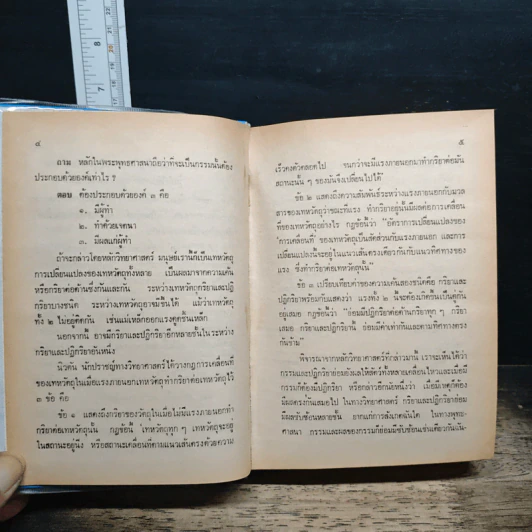 ๘
ถาม หลักในพระพุทธศาสนาถือว่าที่จะเป็นกรรมนั้นต้อง
ประกอบด้วยองค์เท่าไร ?
ตอบ ต้องประกอบด้วยองค์ ๓ คือ
๑. มีผู้ทำ
๒. ทำด้วยเจตนา
๓. มีผลแก่ผู้ทำ
ถ้าจะกล่าวโดยหลักวิทยาศาสตร์ มนุษย์เรานี้ก็เป็นเทหวัตถุ
การเปลี่ยนแปลงของเทหวัตถุทั้งหลาย เป็นผลมาจากความเค้น
หรือกิริยาต่อต้านซึ่งกันและกัน ระหว่างเทหวัตถุกิริยาและปฏิ
กิริยาบางชนิด ระหว่างเทหวัตถุอาจมีขึ้นได้ แม้ว่าเทหวัตถุ
ทั้ง ๒ ไม่อยู่ติดกัน เช่นแม่เหล็กออกแรงดูดชิ้นเหล็ก
นอกจากนี้ อาจมีกิริยาและปฏิกิริยาอีกหลายชั้นในระหว่าง
กิริยาและปฏิกิริยาอันหนึ่ง
นิวตัน นักปราชญ์ทางวิทยาศาสตร์ได้วางกฎการเคลื่อนที่
ของเทหวัตถุในเมื่อแรงภายนอกทำกิริยาต่อเทหวัตถุไว้
๓ ข้อ คือ
ข้อ ๑ แสดงถึงกิริยาของวัตถุในเมื่อไม่มีแรงภายนอกทำ
กิริยาต่อเทหวัตถุนั้น กฎข้อนี้ เทหวัตถุทุก ๆ เทหวัตถุจะอยู่
ในสถานะอยู่นิ่ง หรือสถานะเคลื่อนที่ตามแนวเส้นตรงด้วยความ
๙
เร็วคงตัวตลอดไป จนกว่าจะมีแรงภายนอกมาทำกิริยาต่อมัน
สถานะนั้น ๆ ของมันจึงเปลี่ยนไปได้
ข้อ ๒ แสดงถึงความสัมพันธ์ระหว่างแรงภายนอกกับมวล
สารของเทหวัตถุว่าขณะที่แรง ทำกิริยาอยู่นั้นมีผลต่อการเคลื่อน
ที่ของเทหวัตถุอย่างไร กฎข้อนี้ว่า "อัตราการเปลี่ยนแปลงของ
"การเคลื่อนที่" ของเทหวัตถุเป็นสัดส่วนกับแรงภายนอก และการ
เปลี่ยนแปลงนี้จะอยู่ในแนวเส้นตรงเดียวกันกับแนวทิศทางของ
แรง ซึ่งทำกิริยาต่อเทหวัตถุนั้น"
ข้อ ๓ เปรียบเทียบค่าของความเค้นสองชนิดคือ กิริยาและ
ปฏิกิริยาพร้อมกับแสดงว่า แรงทั้ง ๒ นั้นจะต้องเกิดขึ้นเป็นคู่กัน
อยู่เสมอ กฎข้อนี้ว่า "ย่อมมีปฏิกิริยาต่อต้านกิริยาทุก ๆ กิริยา
เสมอ กิริยาและปฏิกิริยานั้น ย่อมมีค่าเท่ากันและตามทิศทางตรง
กันข้าม"
พิจารณาจากหลักวิทยาศาสตร์ที่กล่าวมานี้ เราจะเห็นได้ว่า
กรรมและปฏิกิริยาย่อมยังผลให้สัตว์ทั้งหลายเคลื่อนไหวและเมื่อมี
กรรมก็ต้องมีปฏิกิริยา หรือกล่าวอีกนัยหนึ่งว่า เมื่อมีเหตุก็ต้อง
มีผลตรงกันเสมอไป ในทางวิทยาศาสตร์ กิริยาและปฏิกิริยาย่อม
มีผลซับซ้อนหลายชั้น ยากแก่การสังเกตฉันใด ในทางพุทธ-
ศาสนา กรรมและผลของกรรมก็ย่อมมีซับซ้อนเช่นเดียวกันฉัน-